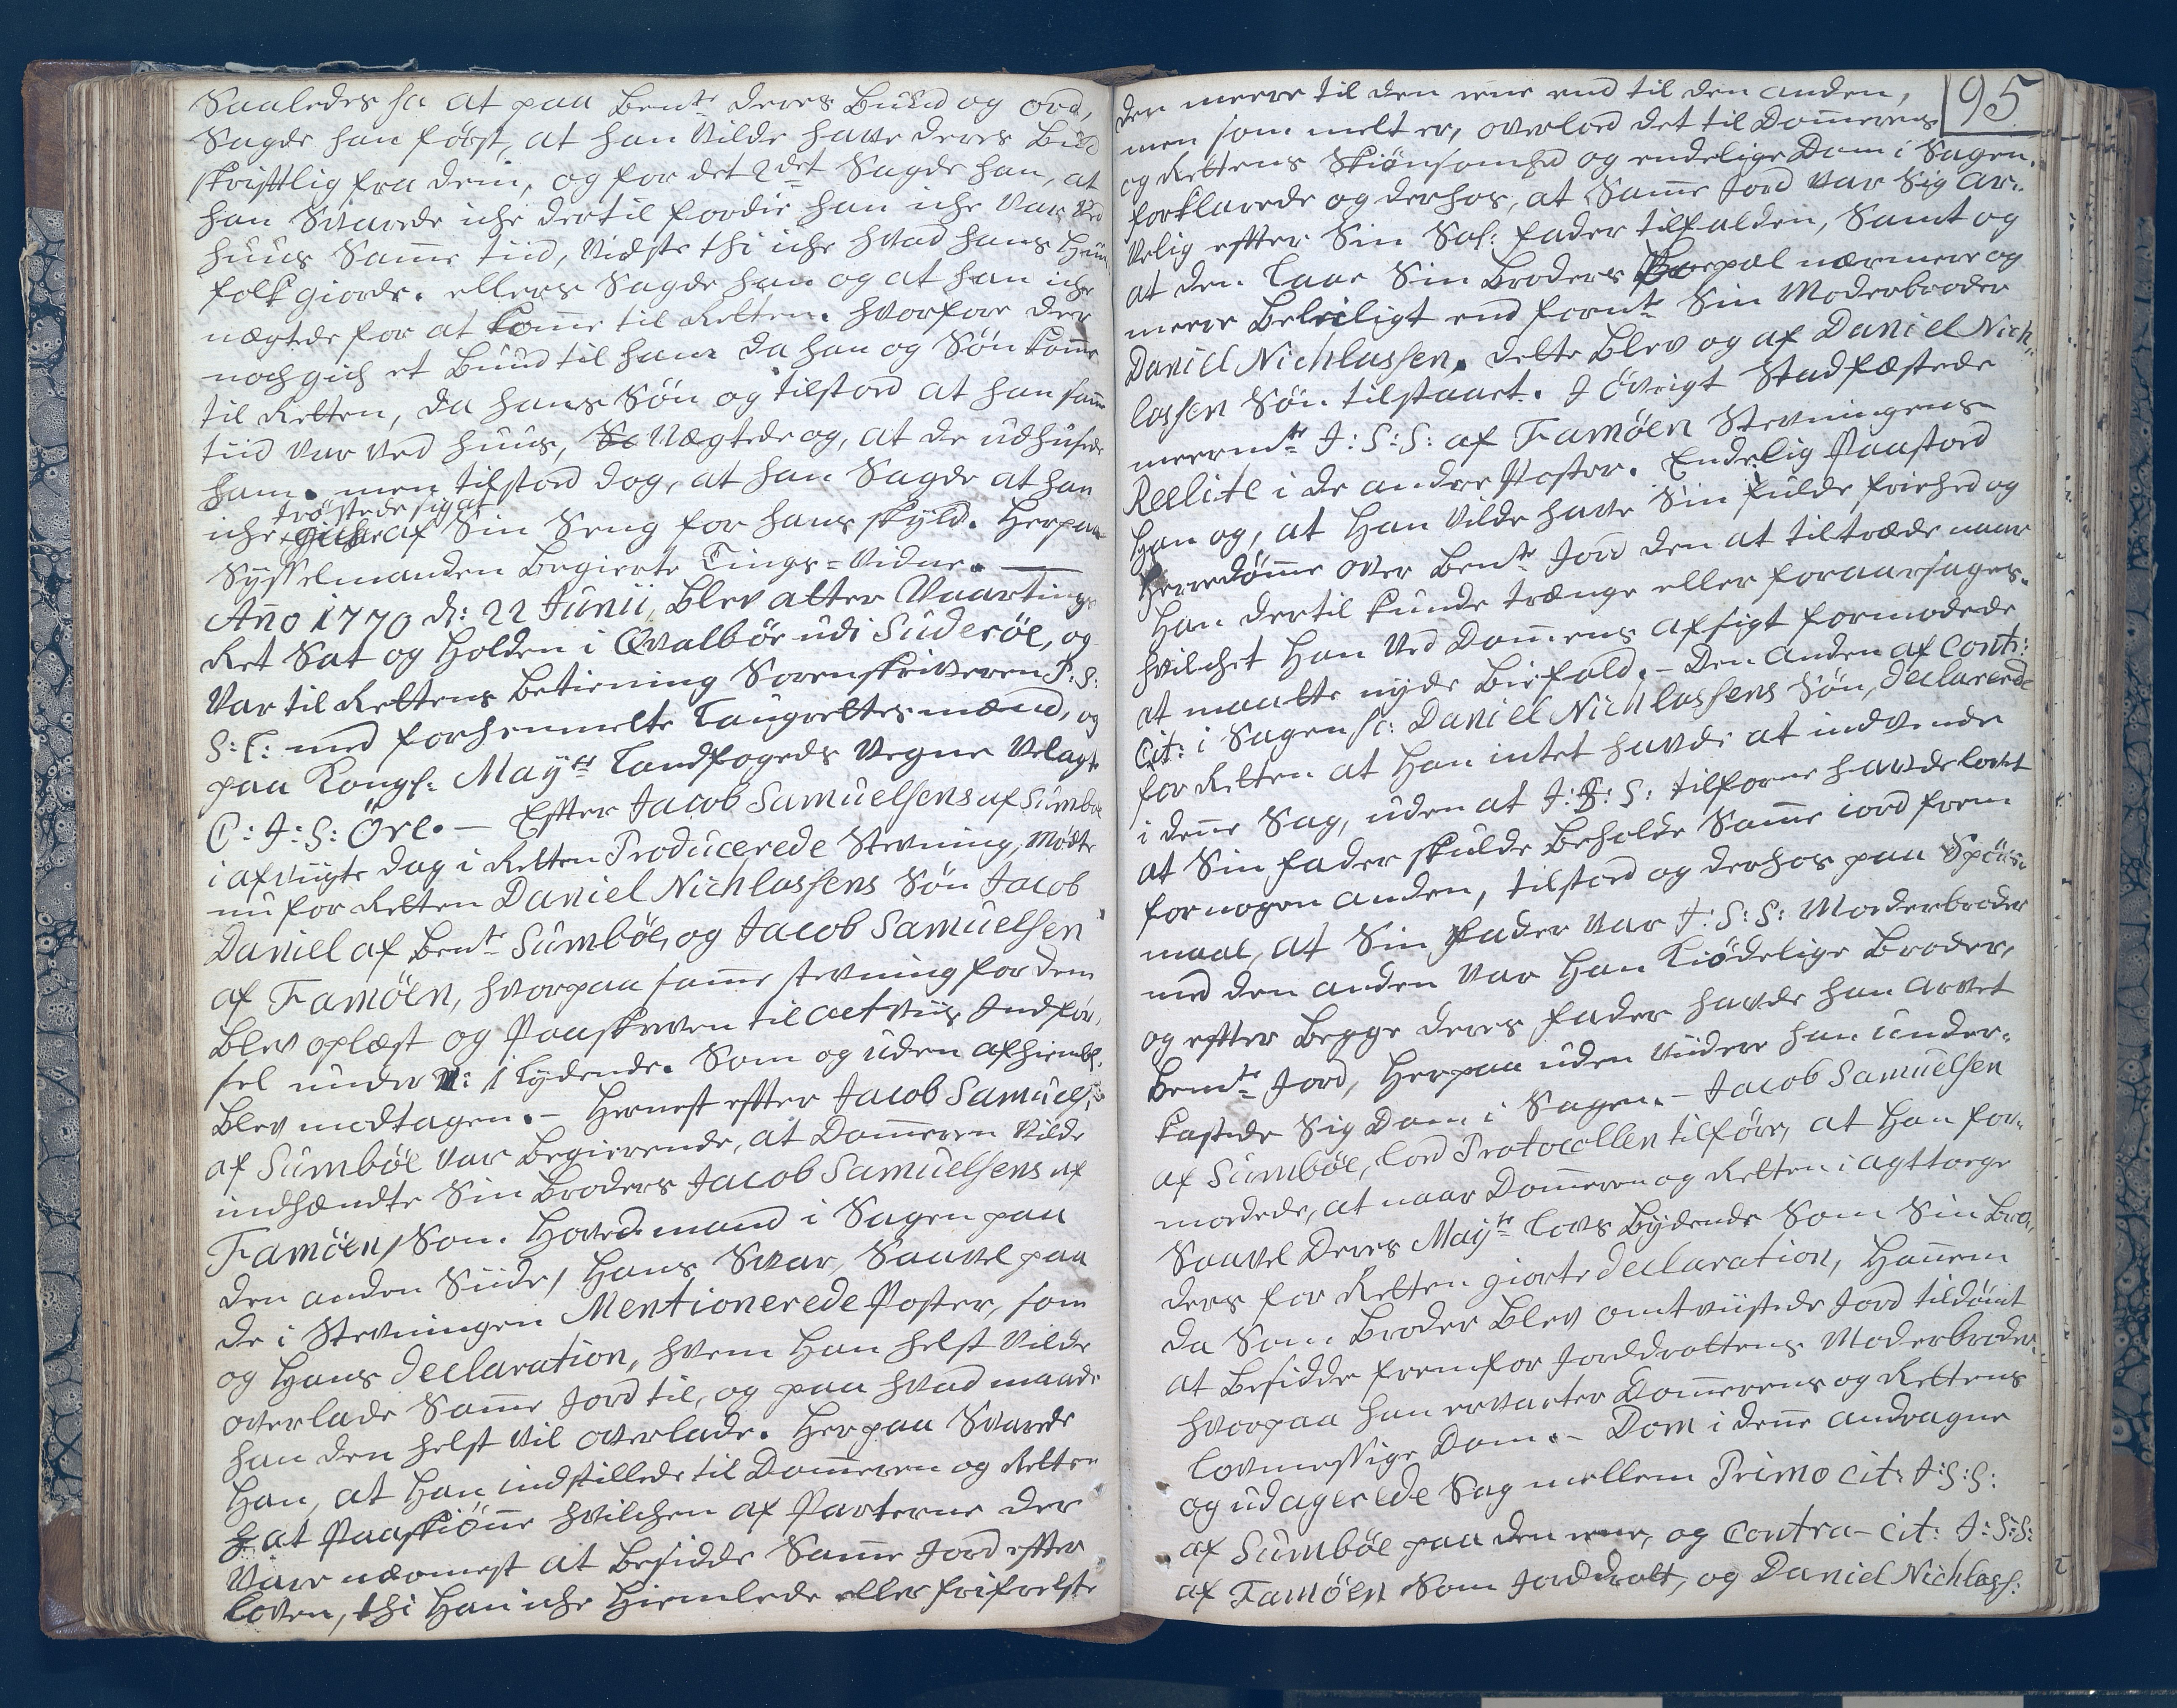 Saaledes sc at paa Bente deres Bud og ord,
Sagde han først, at han Vilde have deres Bud
skriftlig fra dem, og for det 2det Sagde han, at
han Svarede iche dertil fordie han iche Var Ved
Huus Samme tiid, Vidste thi iche hvad hans Huus
folk giorde. ellers Sagde han og at han iche
nægtede for at komme til Retten. hvorfore der
noch gich et Bund til ham da han og Søn komme
til Retten, da hans Søn og tilstoed at han samme
tiid Var Ved Huus, Nægtede og, at de udhusede
ham. men tilstoed dog, at han Sagde at han
iche trøstede sig af Sin Seng for hans skyld. Herpaa
Sysselmanden Begierte Tings-Vidne. —
Anno 1770 d: 22 Junii, Blev atter Vaartings
Ret Sat og Holden i Qvalbøe udi Suderöe, og
Var til Rettens Betiening Sorenskriveren P: S:
S: L: med forhenmelte Laugrettesmænd, og
paa Kongl: Mayts Landfogeds Vegne Velagt
C: J: S: Öre. — Efter Jacob Samuelsens af Sumböe
i afvigte dag i Retten Producerede Stevning, Mødte
nu for Retten Daniel Nichlassens Søn Jacob
Daniel af Bente Sumböe, og Jacob Samuelsen
af Famöen, hvorpaa samme stevning for dem
Blev oplæst og Paaskreven til actviis Indfør,,
sel under N: 1 Lydende. Som og uden afhiemls:
Blev modtagen. — Hernest efter Jacob Samuels:
af Sumböe Var Begierende, at Dommeren Vilde
indhændte Sin Broders Jacob Samuelsens af
Famöen / Som Hovedmand i Sagen paa
den anden Siide / Hans Svar, Saavel paa
de i Stevningen Mentionerede Poster, som
og Hans declaration, hvem Han helst Vilde
overlade Samme Jord til, og paa hvad maade
han den helst Vil overlade. Herpaa Svarede
Han, at Han indstillede til Dommeren og Retten
at Paaskiönne hvilchen af Parterne der
Vare nærmest at Besidde Samme Jord efter
Loven, thi Han iche Hiemlede eller frifrelste
95
den meere til den eene end til den anden,
men som melt er, overlod det til Dommerens
og Rettens Skiönsomhed og endelige Dom i Sagen.
forklarede og derhos, at Samme Jord Var Sig ar,,
velig efter Sin Sal: fader tilfalden, Samt og
at den laae Sin Broders Bopæl nærmere og
meere Beleiligt end formte Sin Moderbroder
Daniel Nichlassen. dette Blev og af Daniel Nich,,
lassen Søn tilstaaet. I övrigt Stadfæstede
meermte J: S: S: af Famöen Stevningens
Reelite i de andre Poster. Endelig Paastod
Han og, at Han Vilde have Sin fulde friehed og
Herredømme over Bente Jord den at tiltræde naar
Han dertil kunde trænge eller foraarsages.
hvilchet Han Ved Dommens afsigt formodede
at maatte nyde Biefald. — Den anden af Contr:
Cit: i Sagen sc: Daniel Nichlassens Søn, declarerede
for Retten at Han intet havde at indvende
i denne Sag, uden at J: S: S: tilforne havde lovet
at Sin fader skulde Beholde Samme jord frem
for nogen anden, tilstod og derhos paa Spörs,,
maal, at Sin fader Var J: S: S: Moderbroder
med den anden Var Han Kiödelige Broder,
og efter Begge deres fader havde han arvet
Bemte Jord, Herpaa uden Viidere han under,,
kastede Sig Dom i Sagen. — Jacob Samuelsen
af Sumböe, lod Protocollen tilföre, at Han for,,
modede, at naar Dommeren og Retten i agttoge
Saavel Deres Mayts Lovs Bydende Som Sin Bro,,
ders for Retten giorte declaration, Hannem
da Som Broder Blev omtviistede Jord tildömt
at Besidde fremfor Jorddrottens Moderbroder.
hvorpaa han ervarter Dommerens og Rettens
lovmessige Dom. — Dom i denne andragne
og udagerede Sag mellem Primo cit: J: S: S:
af Sumböe paa den eene, og Contra-cit: J: S: S:
af Famöen Som Jorddrott, og Daniel Nichlass: